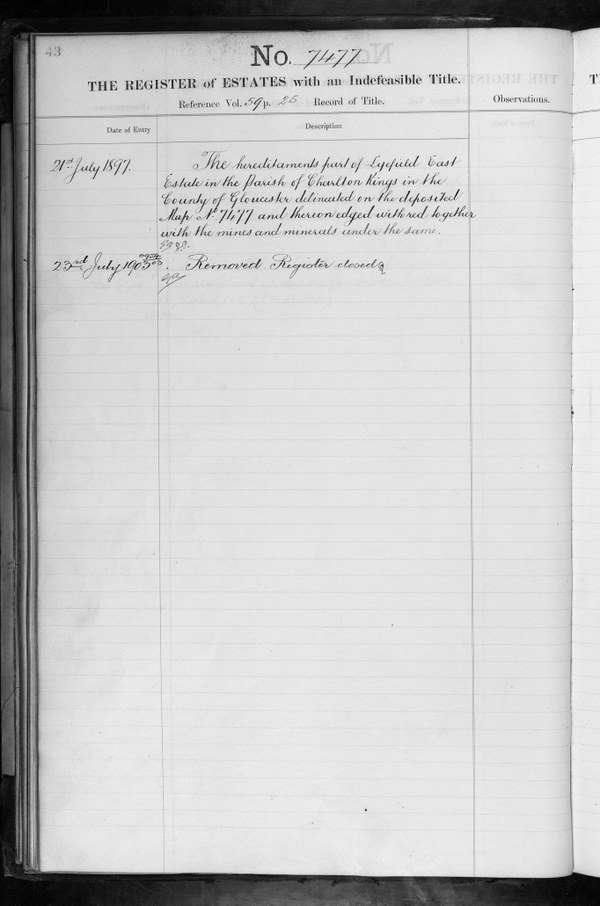 43
No. 7477
THE REGISTER of ESTATES with an Indefeasible Title.
Reference Vol. 59 p. 25 Record of Title.
Observations.
Date of Entry
Description
21st July 1897.
The hereditaments part of Lyefield East
Estate in the Parish of Charlton Kings in the
County of Gloucester delineated on the deposited
Map No. 7477 and thereon edged with red together
with the mines and minerals under the same.
23rd July 1903.
Removed Register closed